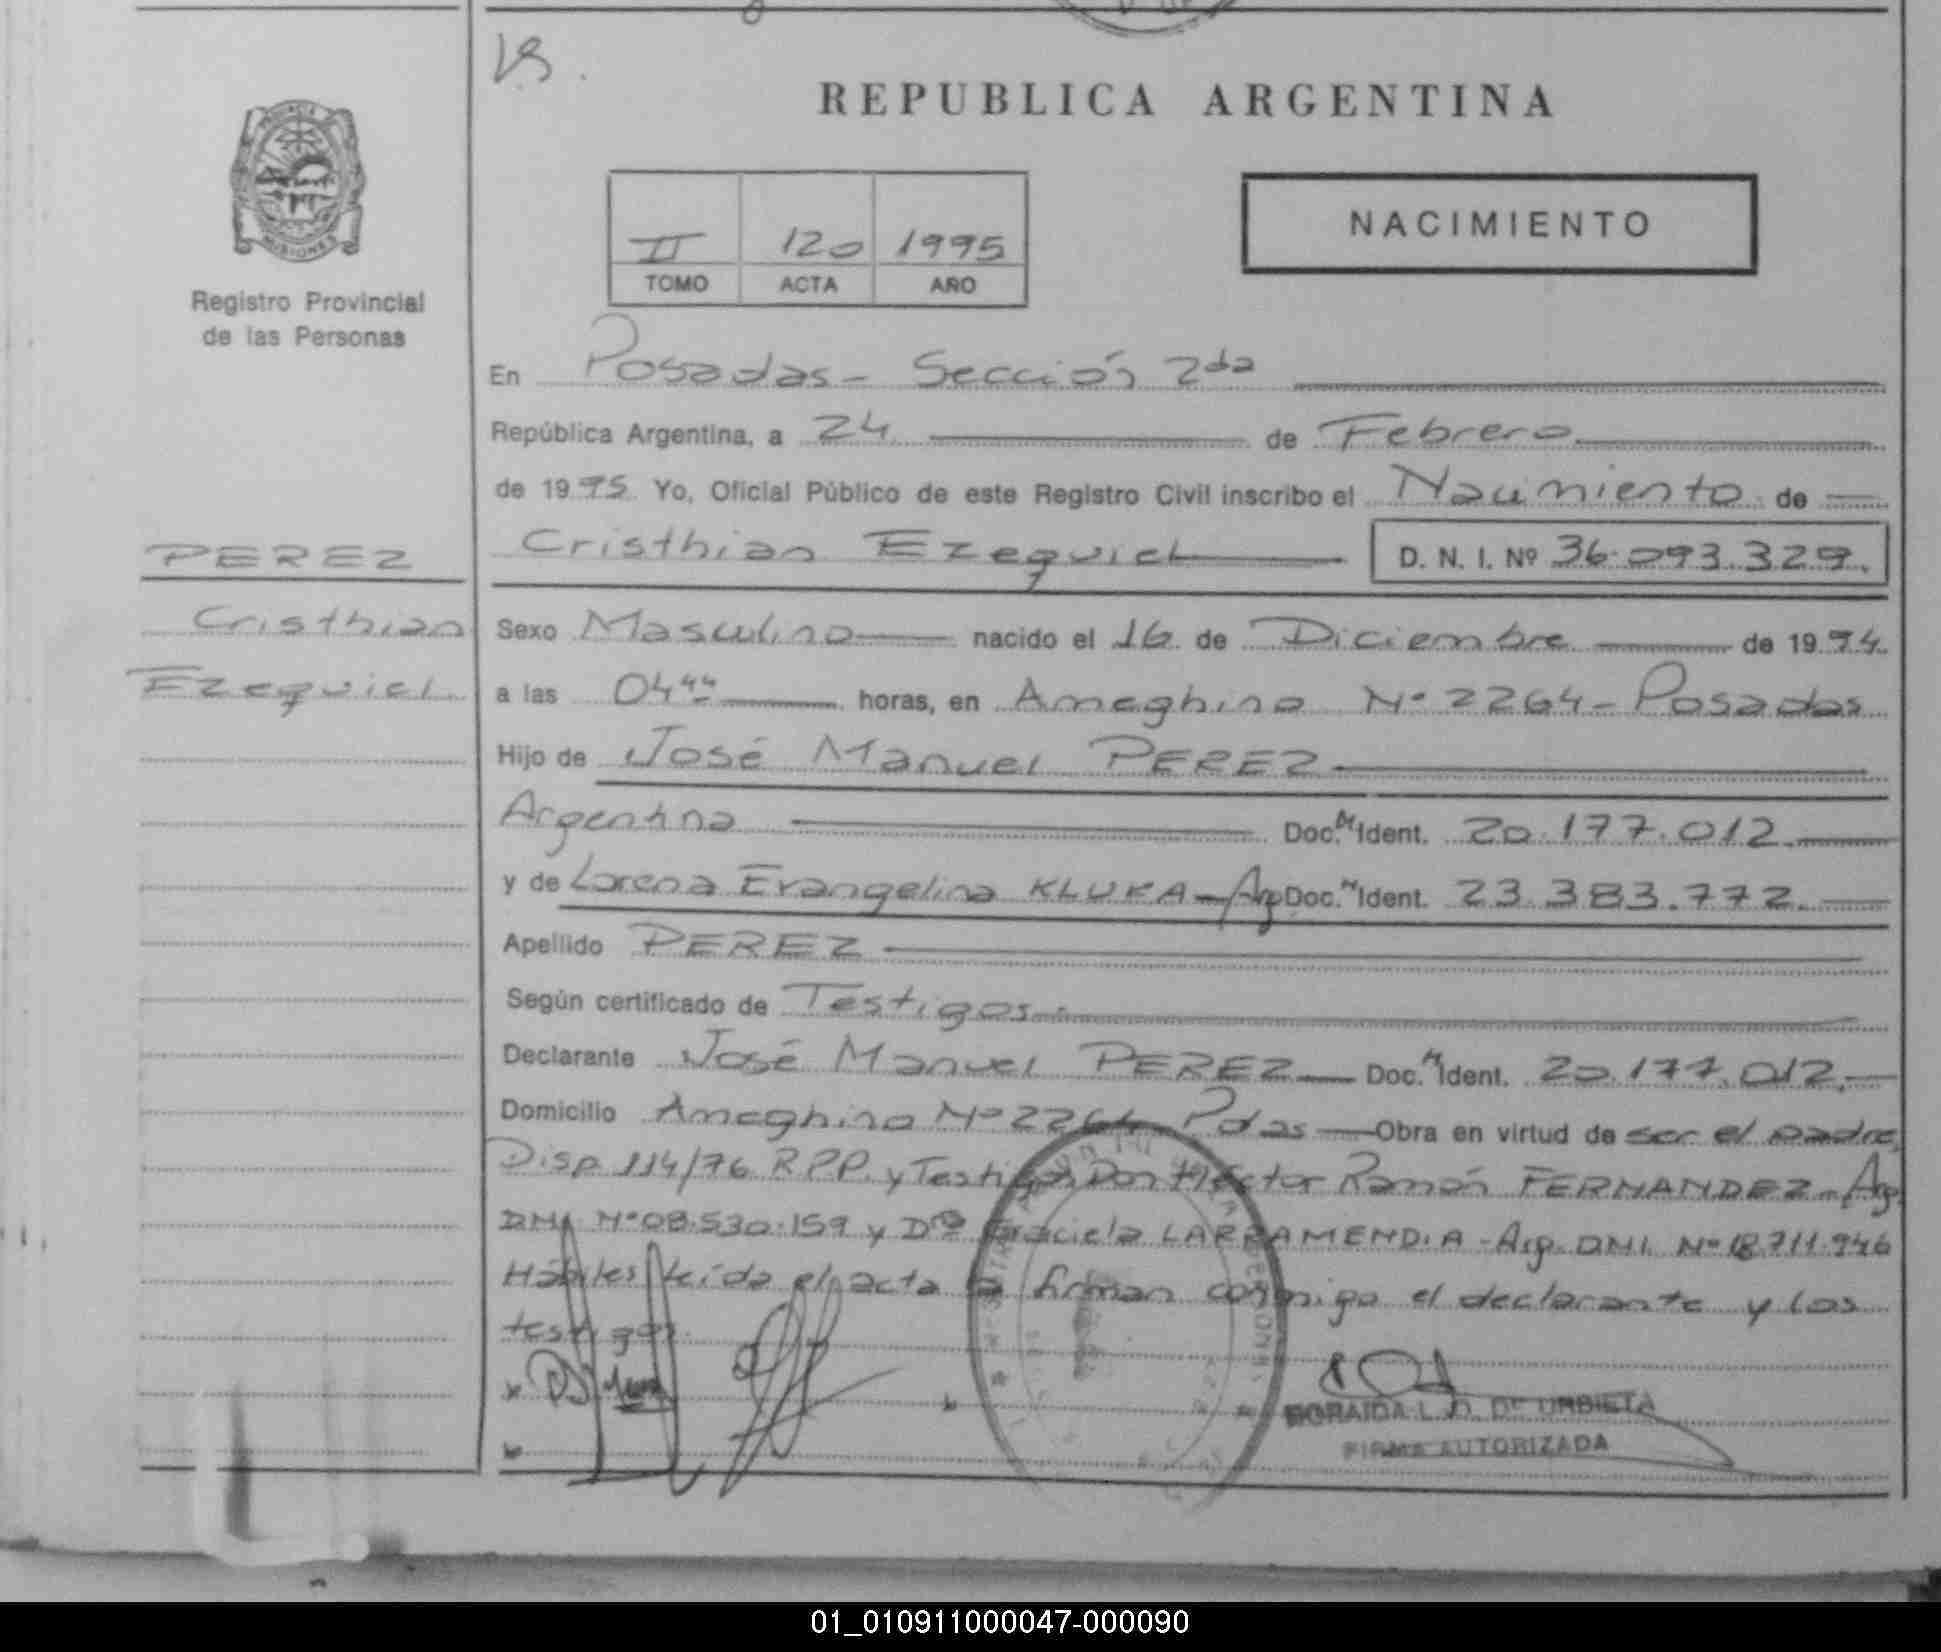 REPUBLICA ARGENTINA
PROVINCIA
MISIONES
Registro Provincial
de las Personas
II 120 1995
TOMO ACTA AÑO
NACIMIENTO
En Posadas - Sección 2da
República Argentina, a 24 de Febrero
de 1995 Yo, Oficial Público de este Registro Civil inscribo el Nacimiento de
PEREZ
Cristhian Ezequiel D. N. I. Nº 36.093.329.
Cristhian
Ezequiel
Sexo Masculino nacido el 16 de Diciembre de 1994
a las 04 horas, en Ameghino Nº 2264 - Posadas
Hijo de José Manuel PEREZ
Argentina Doc. N Ident. 20.177.012.
y de Lorena Evangelina KLUKA - Arg Doc. N Ident. 23.383.772.
Apellido PEREZ
Según certificado de Testigos.
Declarante José Manuel PEREZ Doc. N Ident. 20.177.012.
Domicilio Ameghino Nº 2264 Pdas Obra en virtud de ser el padre,
Disp 114/76 R.P.P. y Testigos Don Héctor Ramón FERNANDEZ - Arg.
DNI Nº 08.530.159 y Dña Graciela LARRAMENDIA - Arg. DNI. Nº 18.711.946
Hábiles leída el acta la firman conmigo el declarante y los
testigos.
L. D. De URBIETA
FIRMA AUTORIZADA
01_010911000047-000090